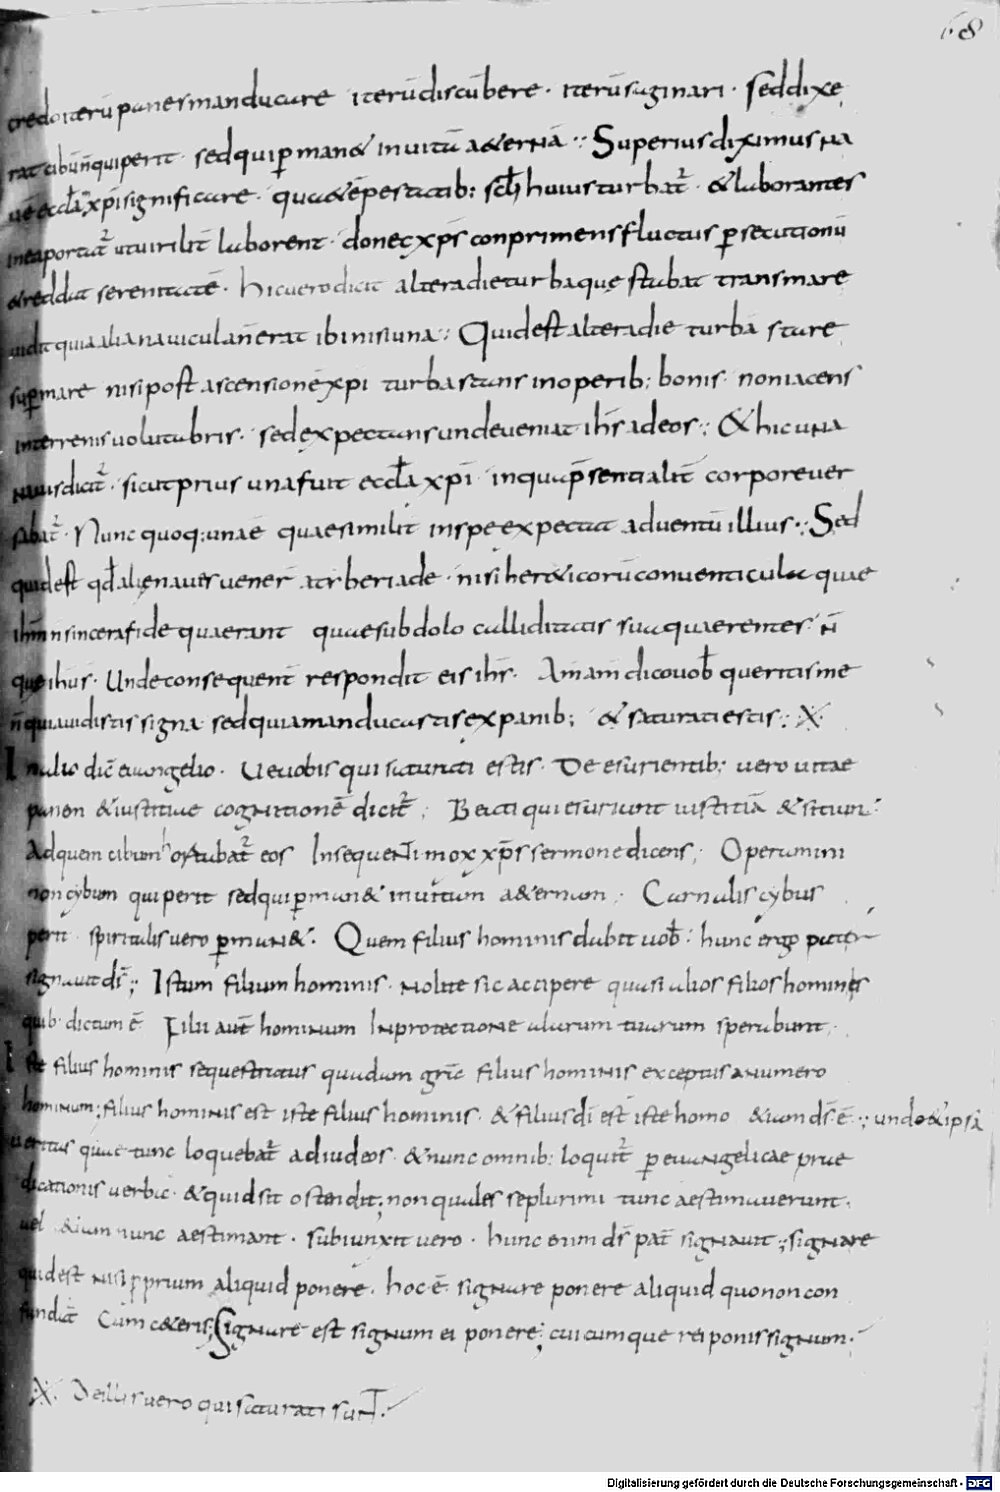 68
credo iterū panes manducare iterū discūbere · iterū saginari · sed dixe
rat cibū n̄ qui perit · sed qui ꝑman& in uitā a&ernā ·: Superius diximus na
uē eccl̄a xp̄i significare · quae &ēpestatib: scl̄i huius turbat̄ · & laborantes
inea portat̄ ut uirilit̄ laborent · donec xp̄s conprimens fluctus ꝑsecutionū
& reddat serenitatē · hic uero dicit altera die turba quę stabat trans mare
uidit quia alia nauicula n̄ erat ibi nisi una ·: Quid est altera die turbā stare
suꝑ mare nisi post ascensionē xp̄i turba stans in operib: bonis · non iacens
in terrenis uolutabris · sed expectans unde ueniat ih̄s ad eos ·: & hic una
nauis dicit̄ · sicut prius una fuit eccl̄a xp̄i in qua p̄sentialit̄ corpore uer
sabat̄ · Nunc quoq: una ē quae similit̄ in spe expectat aduentū illius ·: Sed
quid est qd̄ alię naues uener̄ a tiberiade · nisi her&icorū conuenticula quae
ih̄m n̄ sincera fide quaerant quae subdolo calliditatis sua quaerentes · n̄
que ihūs · Unde consequent̄ respondit eis ih̄s · Am̄ am̄ dico uob̄ queritis me
n̄ quia uidistis signa sed quia manducastis ex panib; & saturati estis ·: X
In alio dic̄ euangelio · Ue uobis qui saturati estis · De esurientib; uero uitae
panen & iustitiae cognitionē dicit̄ ; Beati qui esuriunt iustitiā & sitiun̄
Ad quem cibum hortabat̄ eos Insequenti mox xp̄s sermone dicens ; Operamini
non cybum qui perit sed qui ꝑman& in uitam a&ernam ; Carnalis cybus
perit · spiritalis uero ꝑman& · Quem filius hominis dabit uob̄ · hunc ergo pater
signauit ds̄ ; Istum filium hominis · nolite sic accipere quasi alios filios hominis
quib· dictum ē Filii aut̄ hominum In protectione alarum tuarum sperabunt ·
Iste filius hominis sequestratus quadam gr̄e filius hominis exceptus a numero
hominum ; filius hominis est iste filius hominis · & filius dī est iste homo &iam ds̄ ē ·; unde & ipsa
ueritas quae tunc loquebat̄ ad iudeos · & nunc omnib: loquit̄ ꝑ euangelicae prae
dicationis uerba · & quid sit ostendit ; non quales se plurimi tunc aestimauerunt ·
uel &iam nunc aestimant · subiunxit uero · hunc enim ds̄ pat̄ signauit ·; signare
quid est nisi ꝓprium aliquid ponere · hoc ē signare ponere aliquid quo non con
fundat̄ Cum c&eris ; Signare est signum ei ponere ; cuicumque rei ponis signum ·
X De illis uero qui saturati sunt ·
Digitalisierung gefördert durch die Deutsche Forschungsgemeinschaft - DFG